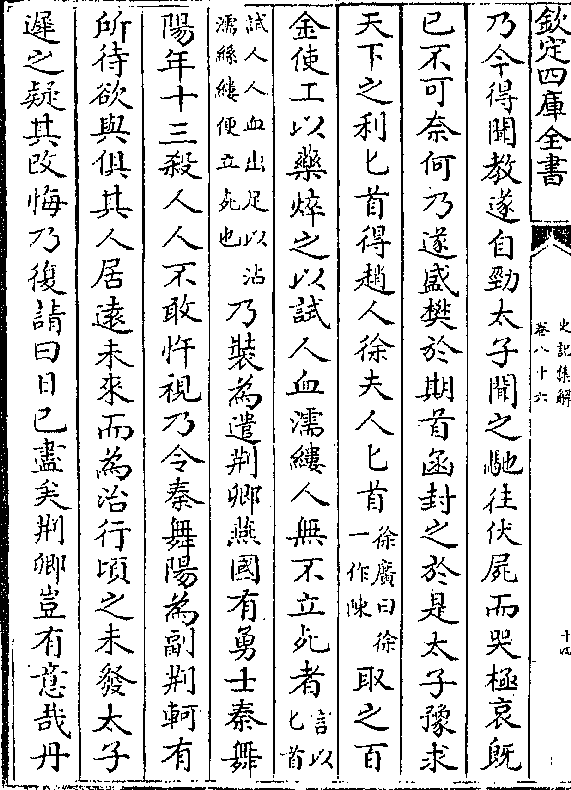 欽定四庫全書
史記集解
卷八十六
十四
乃今得聞教遂自勁太子聞之馳往伏屍而哭極哀旣
已不可奈何乃遂盛樊於期首函封之於是太子豫求
天下之利匕首得趙人徐夫人匕首
徐廣曰徐
一作陳
取之百
金使工以藥焠之以試人血濡縷人無不立死者
言以
匕首
試人人血出足以沾
濡絲縷便立死也
乃裝為遣荆卿燕國有勇士秦舞
陽年十三殺人人不敢忤視乃令秦舞陽為副荆軻有
所待欲與俱其人居遠未來而為治行頃之未發太子
遲之疑其改悔乃復請曰日已盡矣荆卿豈有意哉丹